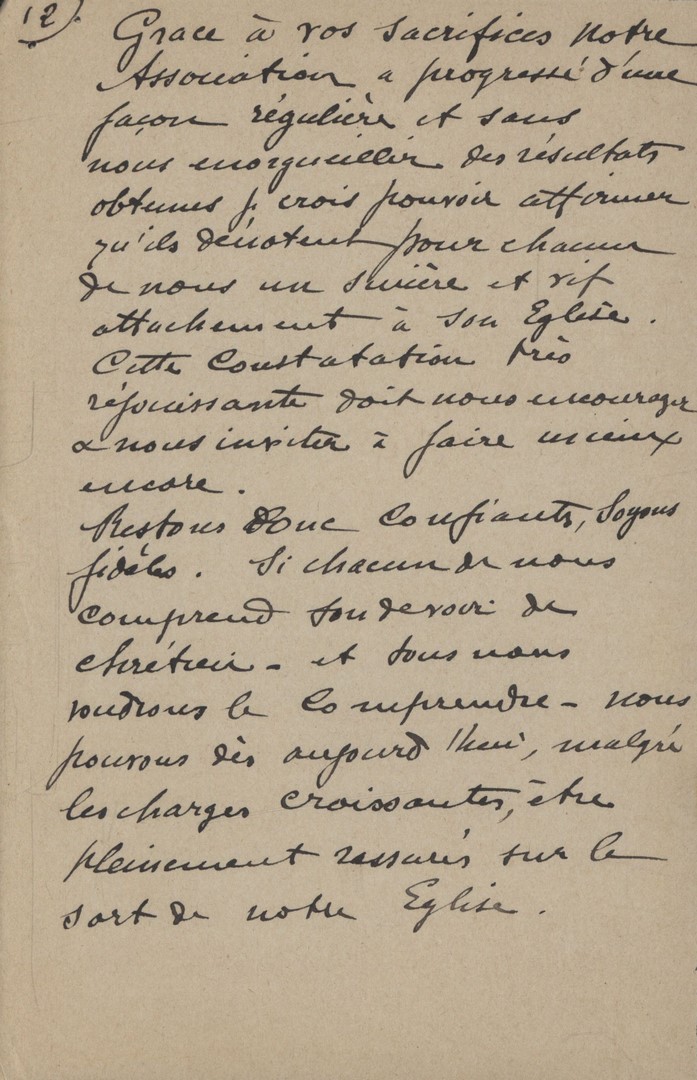 12).
Grace à vos sacrifices notre
Association a progressé d'une
façon régulière et sans
nous enorgueillir des résultats
obtenus je crois pouvoir affirmer
qu'ils dénotent pour chacun
de nous un sincère et vif
attachement à son Eglise.
Cette Constatation très
réjouissante doit nous encourager
& nous inviter à faire mieux
encore.
Restons donc confiants, Soyons
fidèles. Si chacun de nous
comprend son devoir de
chrétien - et tous nous
voudrons le Comprendre - nous
pouvons dès aujourd'hui, malgré
les charges croissantes, être
pleinement rassurés sur le
sort de notre Eglise.